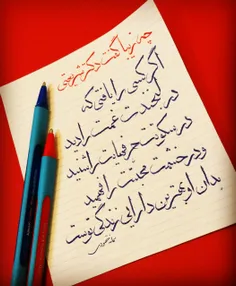 چه زیبا گفت دکتر شریعتی
اگر کسی را یافتی که
در لبخندت غمت را دید
در سکوتت حرفهایت را شنید
و در خشمت محبتت را فهمید
بدان او بهترین دارایی زندگی توست